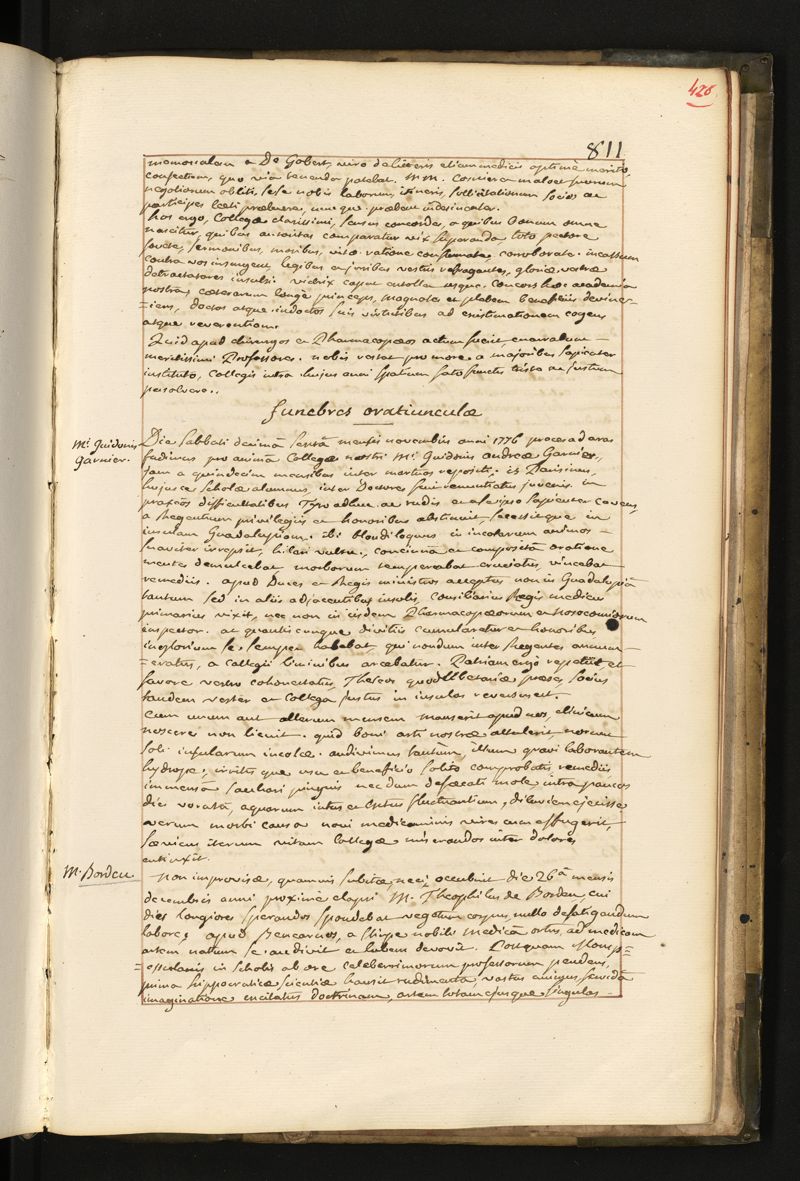 426
811
memorialem a De Gobert, viro de litteris etiam medicis optimè merito,
confectum, quo via tenenda patebat. MM. Cosnier et maloet suorum
negotiorum obliti, sese nobis laborum, itineris, sollicitationum socios ac
participes læti præbuere, præbent indesinenter.
hos ergo, Collegæ clarissimi, sensus concordes, a quibus bonum omne
nascitur, quibus autoritas comparatur vix superanda toto pectore
fovete, sermonibus, moribus, vitæ ratione confirmate, corroborate. incassum
contra vos insurgent, legibus et juribus vestris refragantes, gloriæ vestræ
detractatores insulsi. victrix caput extollet usque. Concors hæc academia
nostra, cæterarum longè princeps, magnates et plebem beneficiis devinc-
=iens, doctos atque indoctos suis virtutibus ad existimationem cogens
atque reverentiam.
Quid apud chirurgos et Pharmacopæos actum fuerit enarrabunt
meritissimi Professores. nobis restat pro more a majoribus sapienter
instituto, Collegis intra hujus anni spatium fato functis justum
persolvere..
funebres oratiunculæ
Mr. Guidonis
Garnier.
Die Sabbati decimâ sextâ mensis novembris anni 1776 preces ad aras
fudimus pro animâ Collegæ nostri Mi. Guidonis andreæ Garnier,
jam a quindecim mensibus inter mortuos repositi. is Parisinus,
hujusce scholæ alumnus, inter Doctores juvenis. in
praxeos difficultatibus Tyro adhuc ac rudis et se ipso sapienter cavens,
a Regentium privilegiis et honoribus abstinuit, secessitque in
insulam Guadalupam. ibi blandiloquus in incolarum animos
suaviter irrepsit, hilari vultu, concinna et compositâ oratione
mentes demulcebat morborum temperabat cruciatus, vincebat
remediis. apud Duces et Regis ministros acceptus non in Guadalupâ
tantum sed in aliis adjacentibus insulis, Consiliarius Regis medicus
primarius vixit, nec non in iisdem Pharmacopæorum et Nosocomiorum
inspector. at quantis cunque divitiis cumularetur et honoribus
inglorium se semper habebat qui nondum inter Regentes annum-
=eratus, a Collegii liminibus arcebatur. Patriam ergo repetiit et
favore vestro cohonestatus, Theseos quodlibetariæ præses, Socius
tandem vester et Collega justus in insulas reversus est.
Cum unum aut alterum mensem manserit apud nos, eti
noscere non licuit. quid boni arti nostræ attulerit norunt
soli insularum incolæ. audivimus tantùm, illum gravi laborantem
hydrope, irritis que usu et beneficio solito comprobatis remediis
immensâ sacchari pinguis nec dum defæcati mole, intra paucos
dies voratâ, aquarum intus et extus fluctuantium, diluviem ejecisse
verum morbi causa novi medicaminis vires cum effugerit,
sæviens iterum vitam Collegæ miserandos inter dolores
extinxit.
M. Bordeu
Non improvisâ, quamvis subitâ, neci occubuit die 26â mensis
decembris anni proximè elapsi M. Theophilus de Bordeu, cui
dies longiores sperandos spondebat vegetum corpus, nullo defatigandum
labore. apud Benearnos, a stirpe nobili medicâ ortus, ad medicam
artem natum se audivit et lubens devovit. Postquam Monsp=
=essulanis in scholis ab ore celeberrimorum professorum pendens,
prima hippocraticæ scientiæ hausit rudimenta vastus animus, fervidâ
imaginatione incitatus doctrinam, artem totam ejusque singulas-